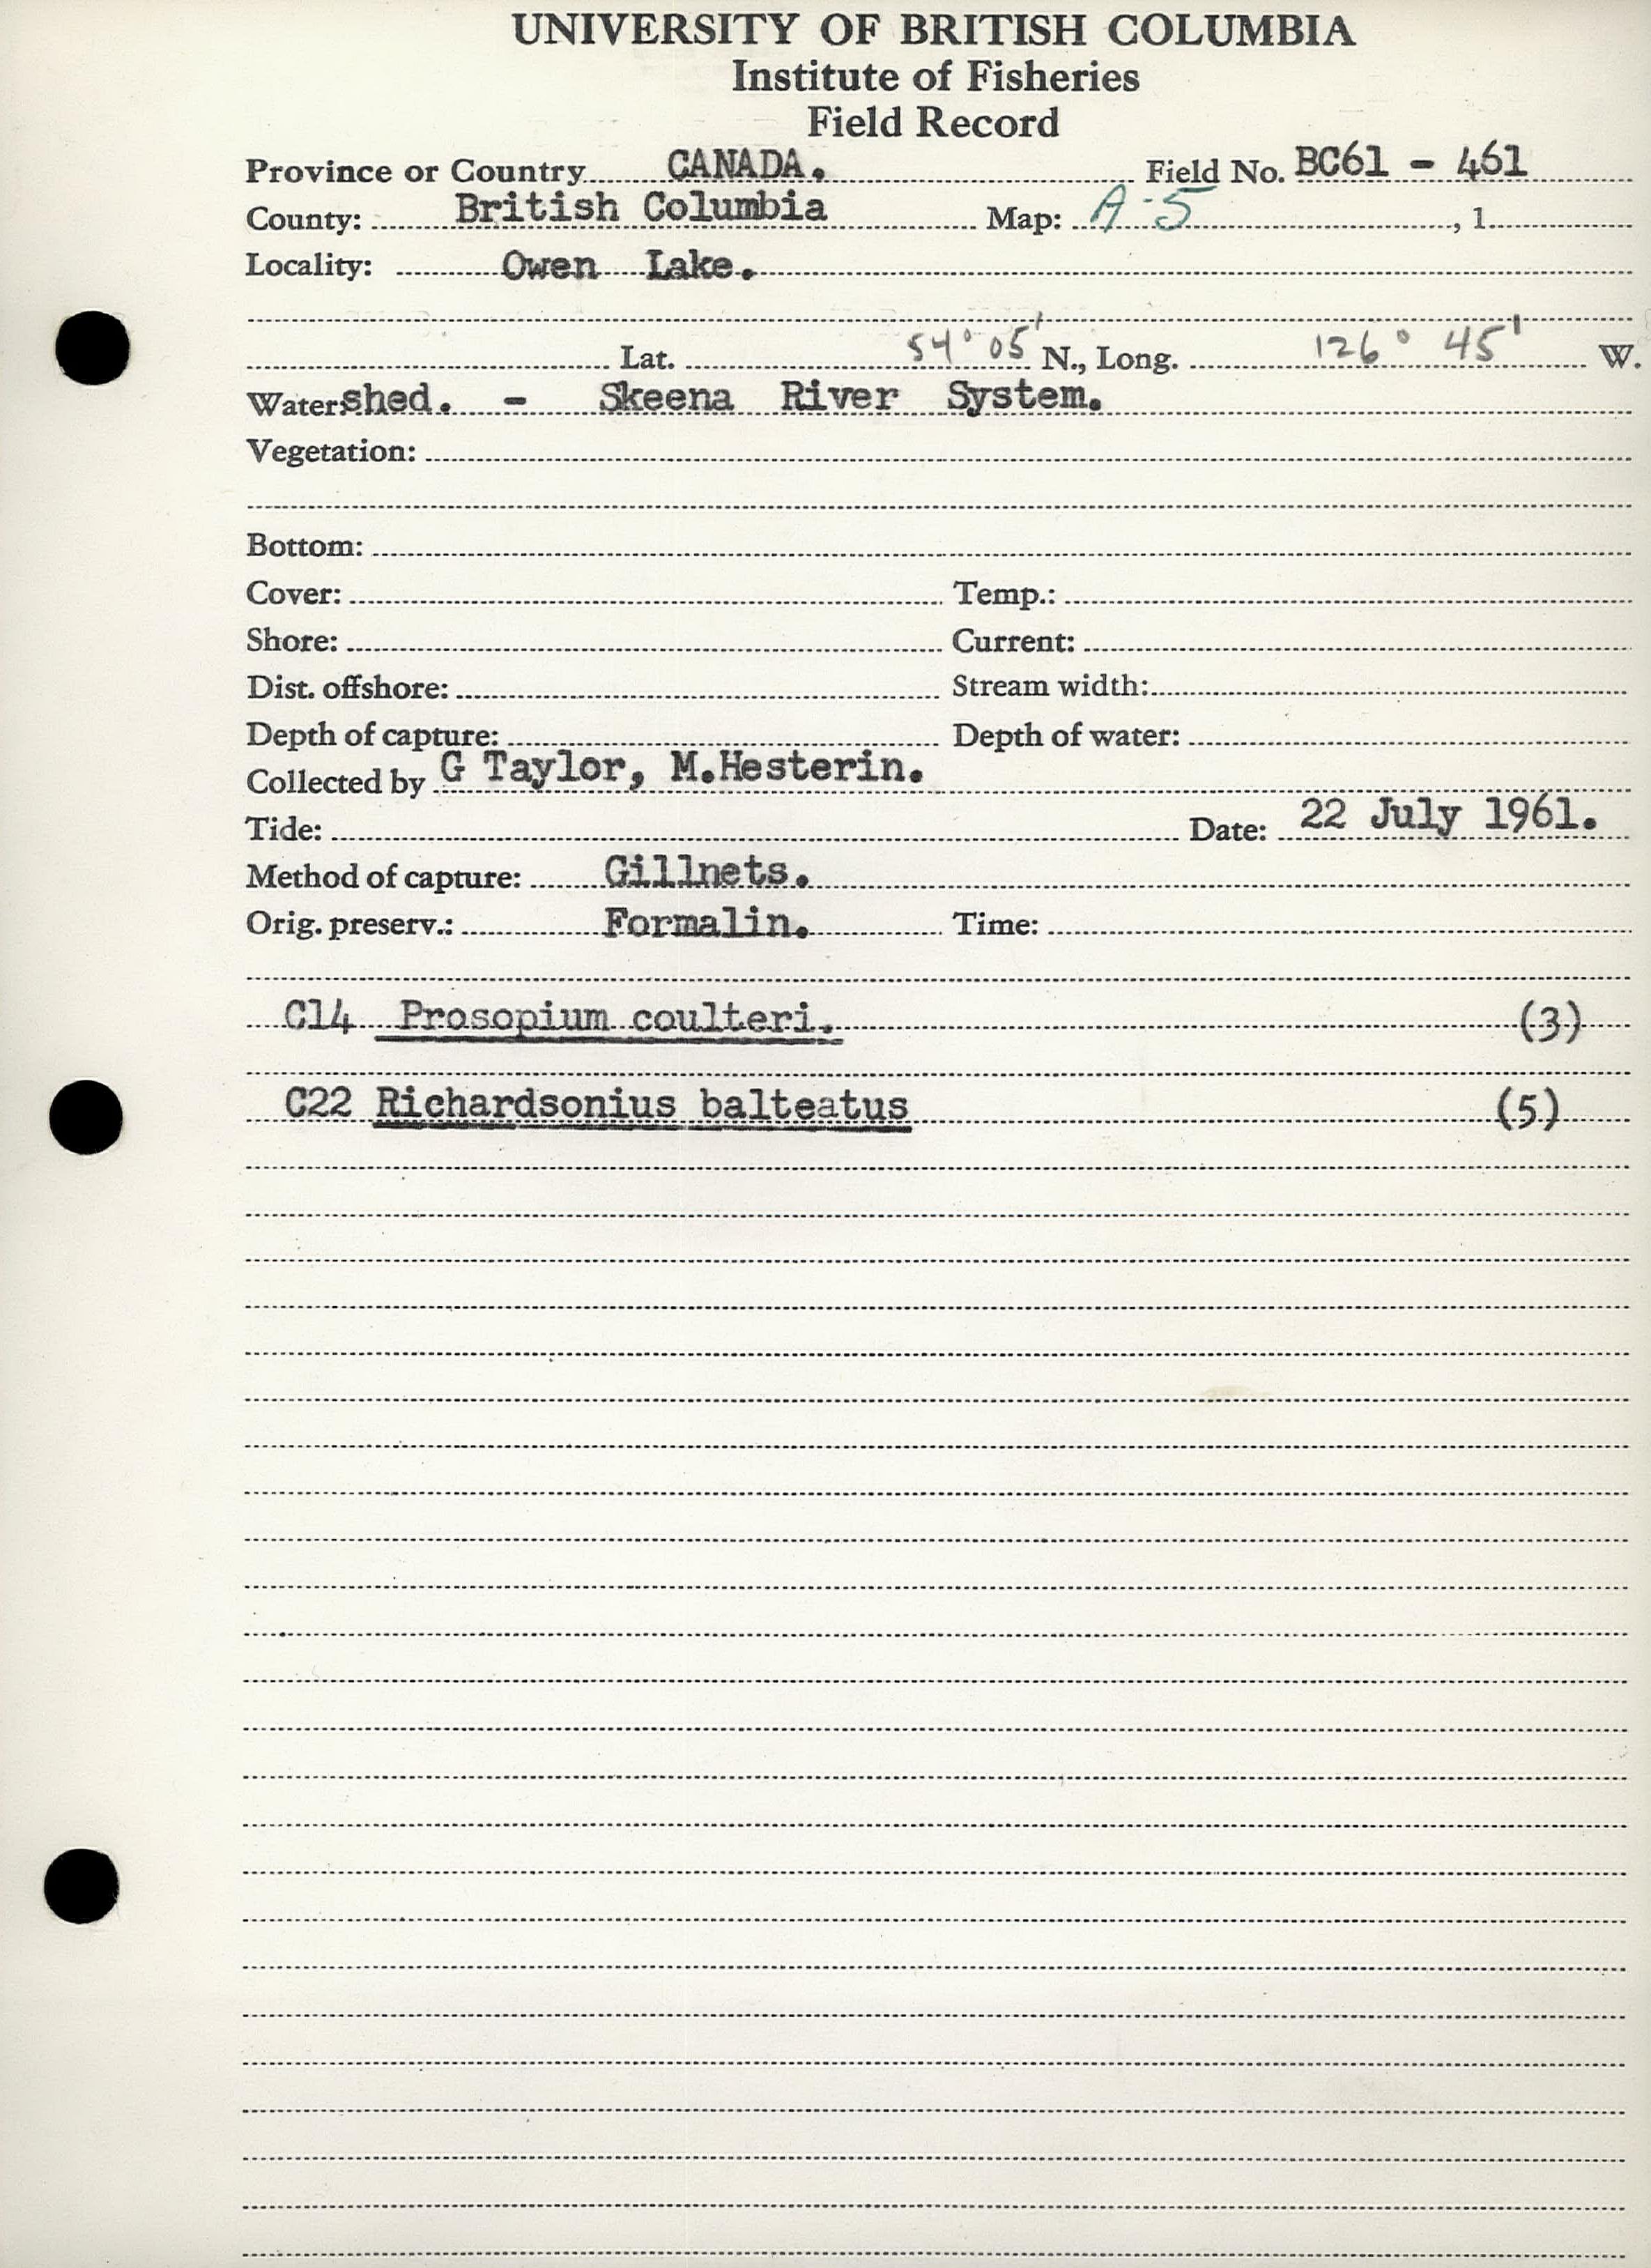 UNIVERSITY OF BRITISH COLUMBIA
Institute of Fisheries
Field Record
Province or Country CANADA. Field No. BC61 - 461
County: British Columbia Map: A-5 , 1
Locality: Owen Lake.
Lat. 54° 05' N., Long. 126° 45' W.
Watershed. - Skeena River System.
Vegetation:
Bottom:
Cover: Temp.:
Shore: Current:
Dist. offshore: Stream width:
Depth of capture: Depth of water:
Collected by G Taylor, M.Hesterin.
Tide: Date: 22 July 1961.
Method of capture: Gillnets.
Orig. preserv.: Formalin. Time:
C14 Prosopium coulteri. (3)
C22 Richardsonius balteatus (5)